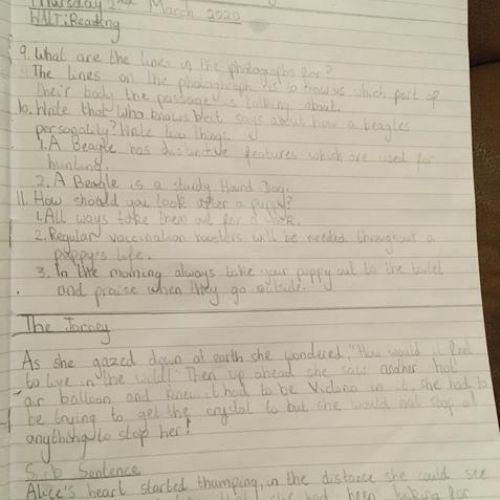 Thursday 2nd March 2020
WALT: Reading
9. What are the lines in the photographs for?
The lines on the photograph is to show us which part of
their body the passage is talking about.
10. Write that who knows best says about how a beagles
personality? Write two things.
1. A Beagle has distinctive features which are used for
hunting.
2. A Beagle is a study Hound Dog.
11. How should you look after a puppy?
1. All ways take them out for a
2. Regular vaccination boosters will be needed throughout a
puppy's life.
3. In the morning always take your puppy out to the toilet
and praise when they go outside.
The Jorney
As she gazed down at earth she wondered, "How would it feel
to live in the wild!" Then up ahead she saw another hot
air balloon and knew it had to be in it, she had to
be trying to get the crystal to but she would not stop at
anything to stop her!
S.b Sentence
Alice's heart started thumping, in the distance she could see
she had been looking for